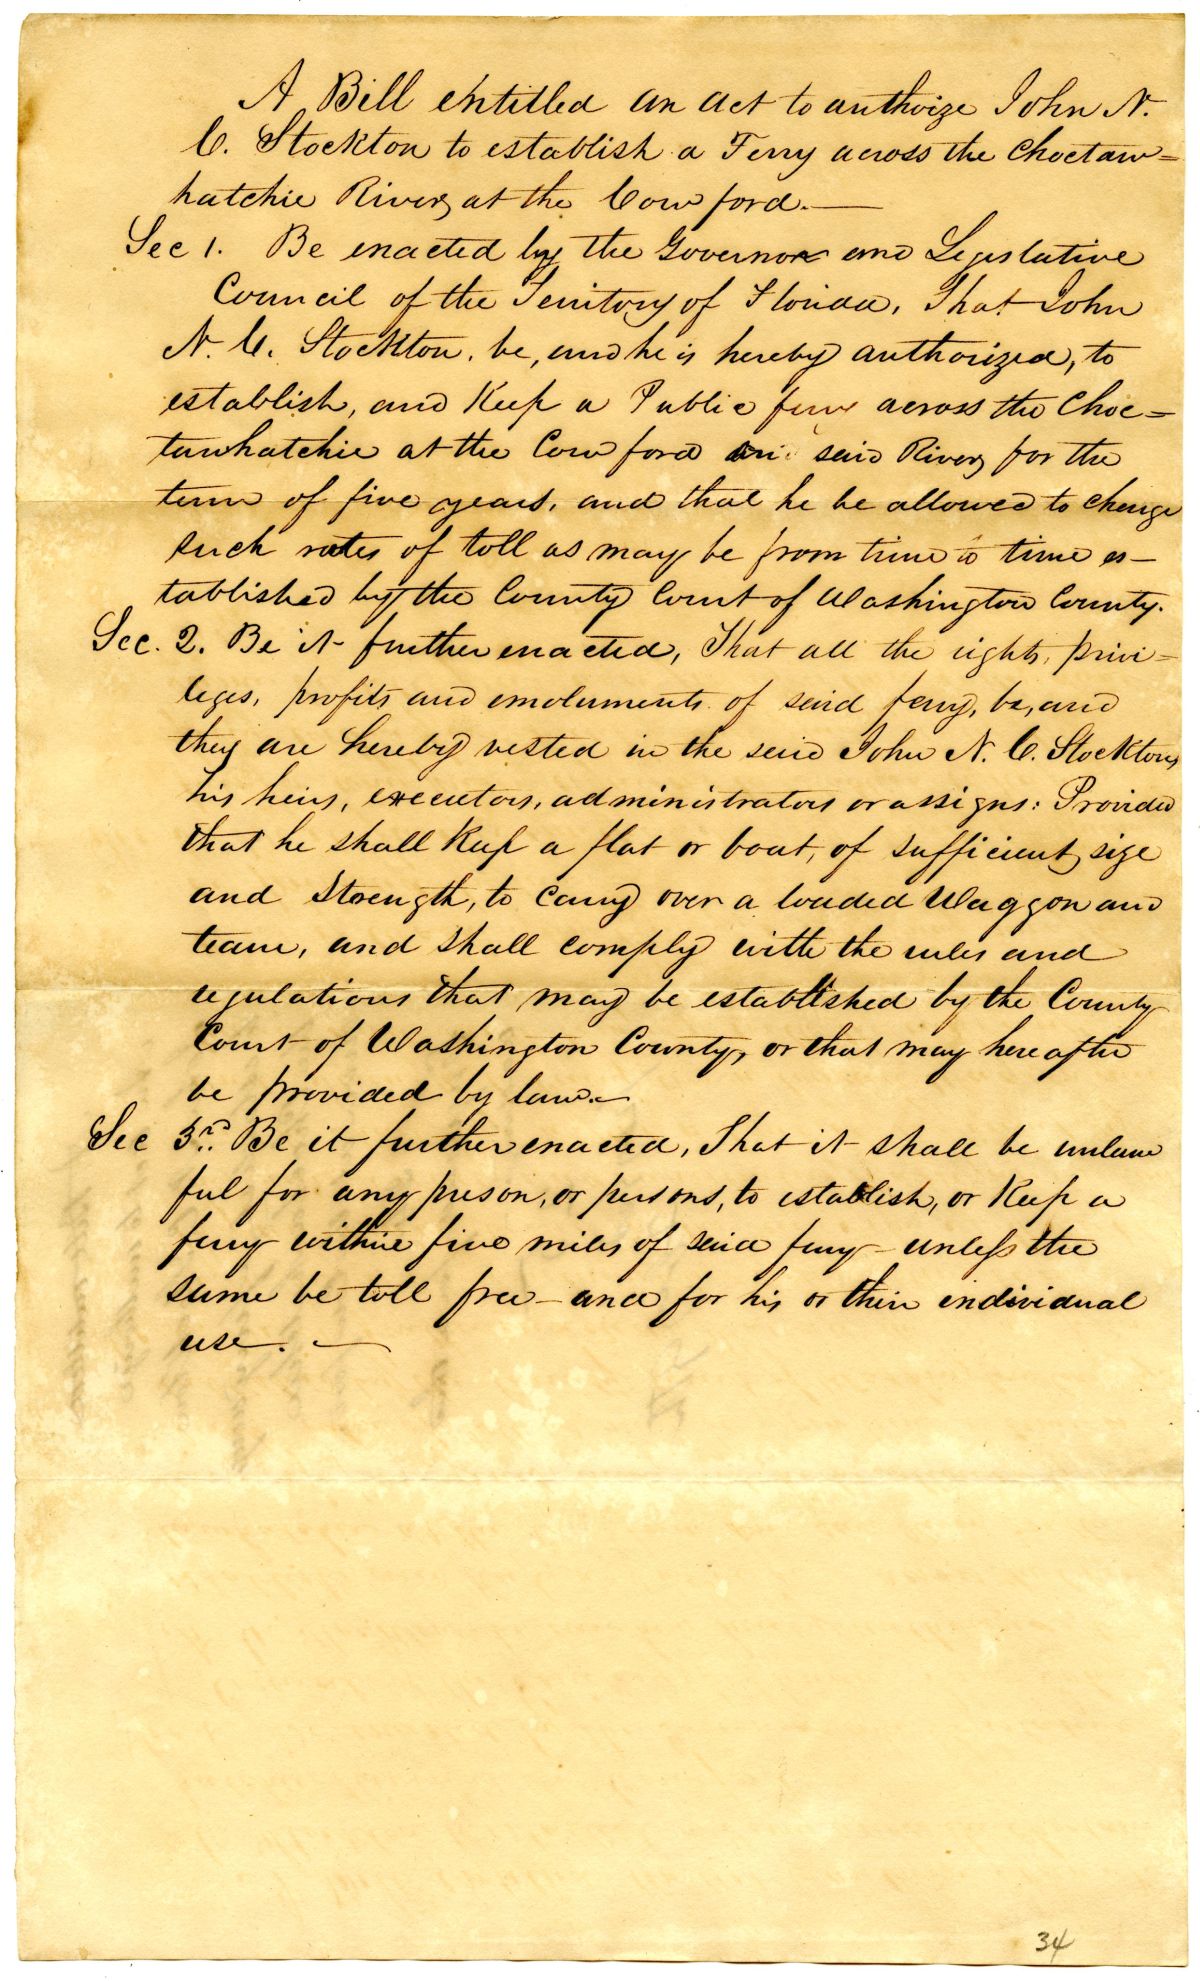 A Bill entitled an act to authoize John N.
C. Stockton to establish a Ferry across the Choctaw=
hatchie River, at the Cow ford.—
Sec 1. Be enacted by the Governor and Legislative
Council of the Territory of Florida, That John
N. C. Stockton, be, and he is hereby authorized, to
establish, and Keep a Public ferry across the Choc=
tawhatchie at the Cow ford on said River, for the
term of five years, and that he be allowed to charge
such rates of toll as may be from time to time es—
tablished by the County Court of Washington County.
Sec. 2. Be it further enacted, That all the rights, privi—
leges, profits and emoluments of said ferry, be, and
they are hereby vested in the said John N. C. Stockton,
his heirs, executors, administrators or assigns: Provided
that he shall Keep a flat or boat, of sufficient size
and Strength, to carry over a loaded Waggon and
team, and shall comply with the rules and
regulations that may be established by the County
Court of Washington County, or that may hereafter
be provided by law.—
Sec 3rd. Be it further enacted, That it shall be unlaw
ful for any person, or persons, to establish, or Keep a
ferry within five miles of said ferry unless the
same be toll free—and for his or their individual
use.—
34